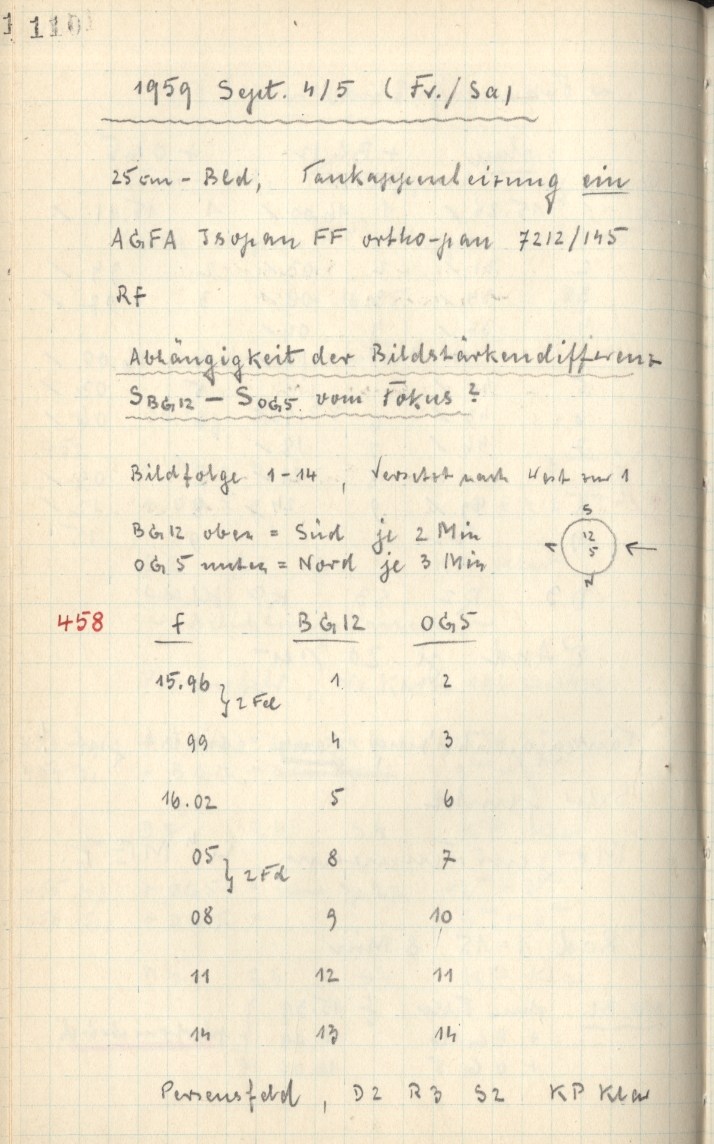 110
1959 Sept. 4/5 (Fr./Sa)
25cm-Bld, Taukappenheizung ein
AGFA Isopan FF ortho-pan 7212/145
Rf
Abhängigkeit der Bildstärkendifferenz
SBG12 – SOG5 vom Fokus?
Bildfolge 1-14, versetzt nach West zur 1
S
BG12 oben = Süd je 2 Min
12
OG5 unten = Nord je 3 Min
5
N
458 f BG12 OG5
15.96 1 2
} 2 Fd
99 4 3
16.02 5 6
05 8 7
} 2 Fd
08 9 10
11 12 11
14 13 14
Perseusfeld, D2 R3 S2 KP klar